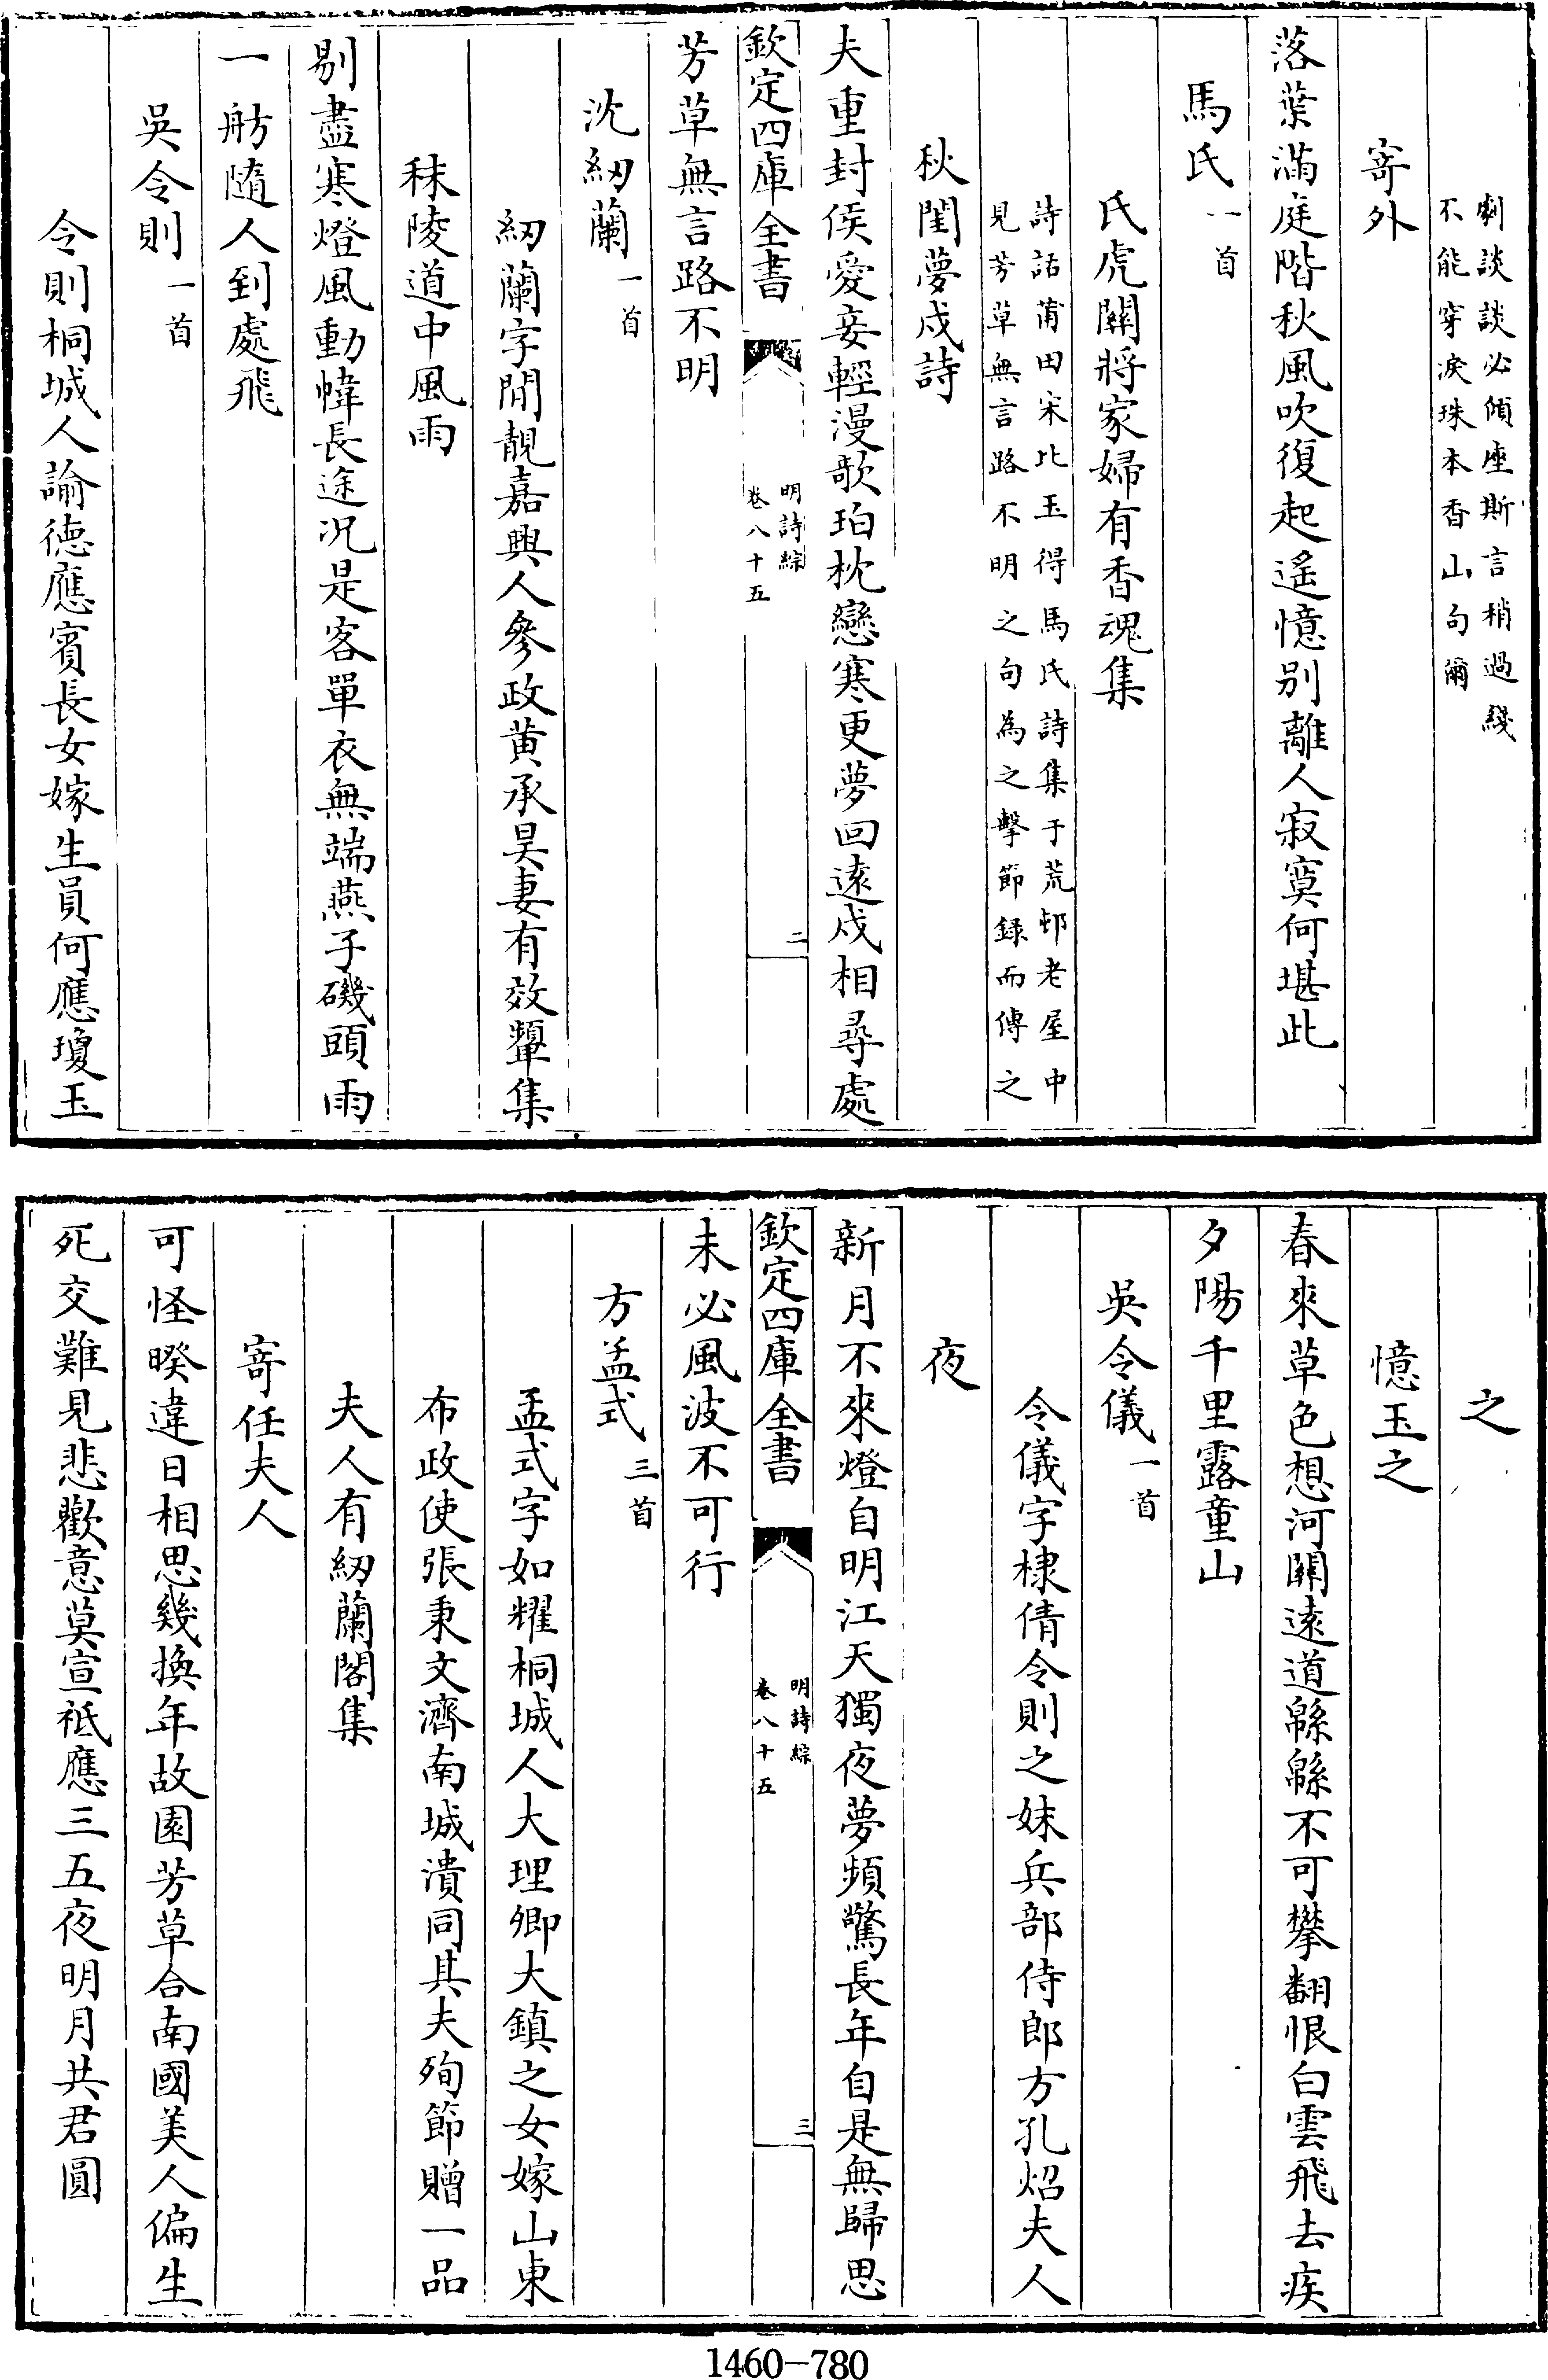 劇談談必傾座斯言稍過綫
不能穿淚珠本香山句爾
寄外
落葉滿庭階秋風吹復起遙憶別離人寂寞何堪此
馬氏一首
氏虎關將家婦有香魂集
詩話莆田宋比玉得馬氏詩集于荒邨老屋中
見芳草無言路不明之句為之擊節録而傳之
秋閨夢戍詩
夫重封侯愛妾輕漫歌珀枕戀寒更夢回逺戍相尋處
欽定四庫全書
明詩綜
卷八十五
二
芳草無言路不明
沈紉蘭一首
紉蘭字閒靚嘉興人參政黄承昊妻有效顰集
秣陵道中風雨
剔盡寒燈風動幃長途況是客單衣無端燕子磯頭雨
一舫隨人到處飛
吳令則一首
令則桐城人諭德應賓長女嫁生員何應瓊玉
之
憶玉之
春來草色想河闗逺道緜緜不可攀翻恨白雲飛去疾
夕陽千里露童山
吳令儀一首
令儀字棣倩令則之妹兵部侍郎方孔炤夫人
夜
新月不來燈自明江天獨夜夢頻驚長年自是無歸思
欽定四庫全書
明詩綜
卷八十五
三
未必風波不可行
方孟式三首
孟式字如耀桐城人大理卿大鎮之女嫁山東
布政使張秉文濟南城潰同其夫殉節贈一品
夫人有紉蘭閣集
寄任夫人
可怪睽違日相思幾換年故園芳草合南國美人偏生
死交難見悲歡意莫宣祗應三五夜明月共君圓
1460-780